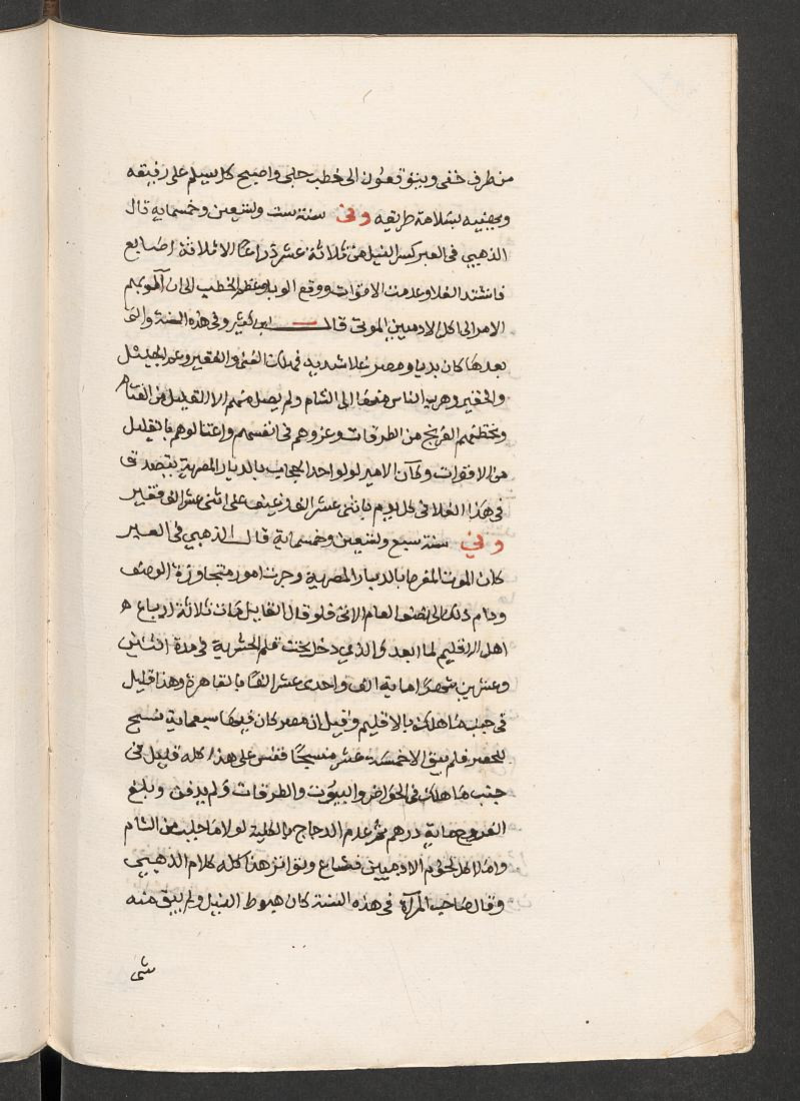 من طرف خفى ويتوقعون الى خطب جلى واصبح كل يسلم على رفيقه
ويهنيه بسلامة طريقه وفى سنة ست وتسعين وخمسماية قال
الذهبي في العبر كسر النيل من ثلاثة عشر ذراعا الا ثلاثة اصابع
فاشتد الغلا وعدمت الاقوات ووقع الوبا وعظم الخطب الى ان آل بهم
الامر الى اكل الادميين الموتى قال ابن كثير وفى هذه السنة والتى
بعدها كان بديار مصر غلا شديد فهلك الغنى والفقير وعم الجليل
والحقير وهرب الناس منها الى الشام ولم يصل منهم الا القليل من الفئام
وتخطفهم الفرنج من الطرقات وغروهم فى انفسهم واغتالوهم بالقليل
من الاقوات وكان الامير لولو احد الحجاب بالديار المصرية يتصدق
فى هذا الغلا فى كل يوم باثنى عشر الف رغيف على اثنى عشر الف فقير
وفي سنة سبع وتسعين وخمسماية قال الذهبي فى العبر
كان الموت المفرط بالديار المصرية وجرت امور متجاوزة الوصف
ودام ذلك الى نصف العام الاتى فلو قال القايل مات ثلاثة ارباع
اهل الاقليم لما ابعد والذي دخل تحت قلم الحشرية فى مدة اثنين
وعشرين شهرا ماية الف واحدى عشر الفا بالقاهرة وهذا قليل
فى جنب ما هلك بالاقليم وقيل ان مصر كان فيها سبعماية منسج
للحصر فلم يبق الا خمسة عشر منسجا فقس على هذا كله قليل فى
جنب ما هلك فى الحواضر والبيوت والطرقات ولم يدفن وبلغ
الفروج ماية درهم ثم عدم الدجاج بالكلية لولا ما جلب من الشام
واما اكل لحوم الادميين فشاع وتواتر هذا كله كلام الذهبي
وقال صاحب المرآة فى هذه السنة كان هبوط النيل ولم يبق منه
شى